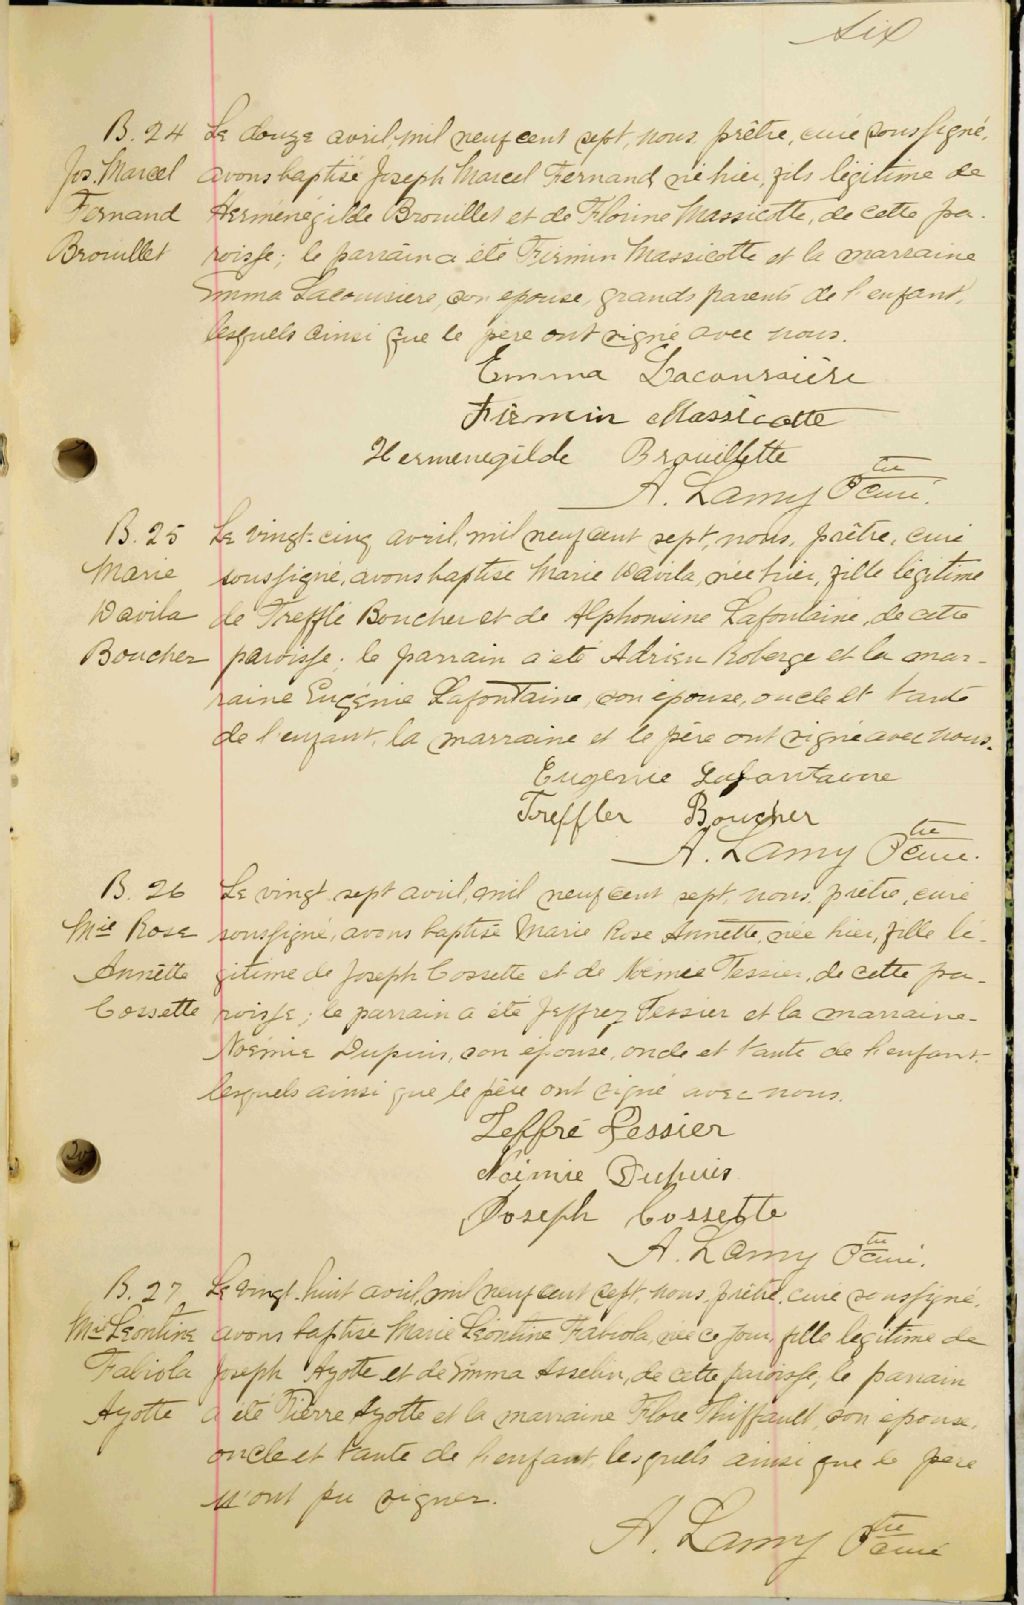 six
B. 24 Le douze avril, mil neuf cent sept, nous, prêtre, curé soussigné,
Jos. Marcel avons baptisé Joseph Marcel Fernand, né hier, fils légitime de
Fernand Herménégilde Brouillet et de Florine Massicotte, de cette pa-
Brouillet roisse; le parrain a été Firmin Massicotte et la marraine
Emma Lacoursiere, son épouse, grands parents de l'enfant,
lesquels ainsi que le père ont signé avec nous.
Emma Lacoursière
Firmin Massicotte
Hermenegilde Brouillette
A. Lamy Ptre curé.
B. 25 Le vingt-cinq avril, mil neuf cent sept, nous, prêtre, curé
Marie soussigné, avons baptisé Marie Davila, née hier, fille légitime
Davila de Trefflé Boucher et de Alphonsine Lafontaine, de cette
Boucher paroisse; le parrain a été Adrien Roberge et la mar-
raine Eugénie Lafontaine, son épouse, oncle et tante
de l'enfant, la marraine et le père ont signé avec nous.
Eugenie Lafontaine
Treffler Boucher
A. Lamy Ptre curé.
B. 26 Le vingt-sept avril, mil neuf cent sept, nous, prêtre, curé
Mie Rose soussigné, avons baptisé Marie Rose Annette, née hier, fille lé-
Annette gitime de Joseph Cossette et de Noémie Tessier, de cette pa-
Cossette roisse; le parrain a été Jeffrey Tessier et la marraine
Noémie Dupuis, son épouse, oncle et tante de l'enfant,
lesquels ainsi que le père ont signé avec nous.
Jeffré Tessier
Noimie Dupuis
Joseph Cossette
A. Lamy Ptre curé.
B. 27 Le vingt-huit avril, mil neuf cent sept, nous, prêtre, curé soussigné,
Mie Léontine avons baptisé Marie Léontine Fabiola, née ce jour, fille légitime de
Fabiola Joseph Ayotte et de Emma Asselin, de cette paroisse; le parrain
Ayotte a été Pierre Ayotte et la marraine Flore Thiffault, son épouse,
oncle et tante de l'enfant, lesquels ainsi que le père
n'ont pu signer.
A. Lamy Ptre curé